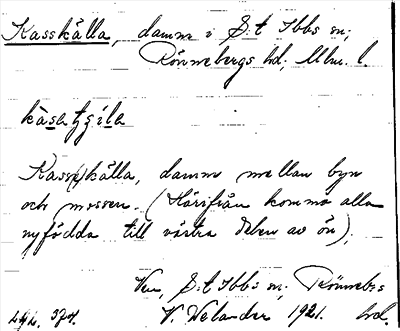 Kasskälla, damm i S:t Ibbs sn,
Rönnebergs hd, Mlm. l.
kàsatʃɛ́la
Kass(e)källa, damm mellan byn
och mossen. (Härifrån komma alla
nyfödda till västra delen av ön).
Ven, S:t Ibbs sn, Rönnebgs
V. Welander 1921. hd.